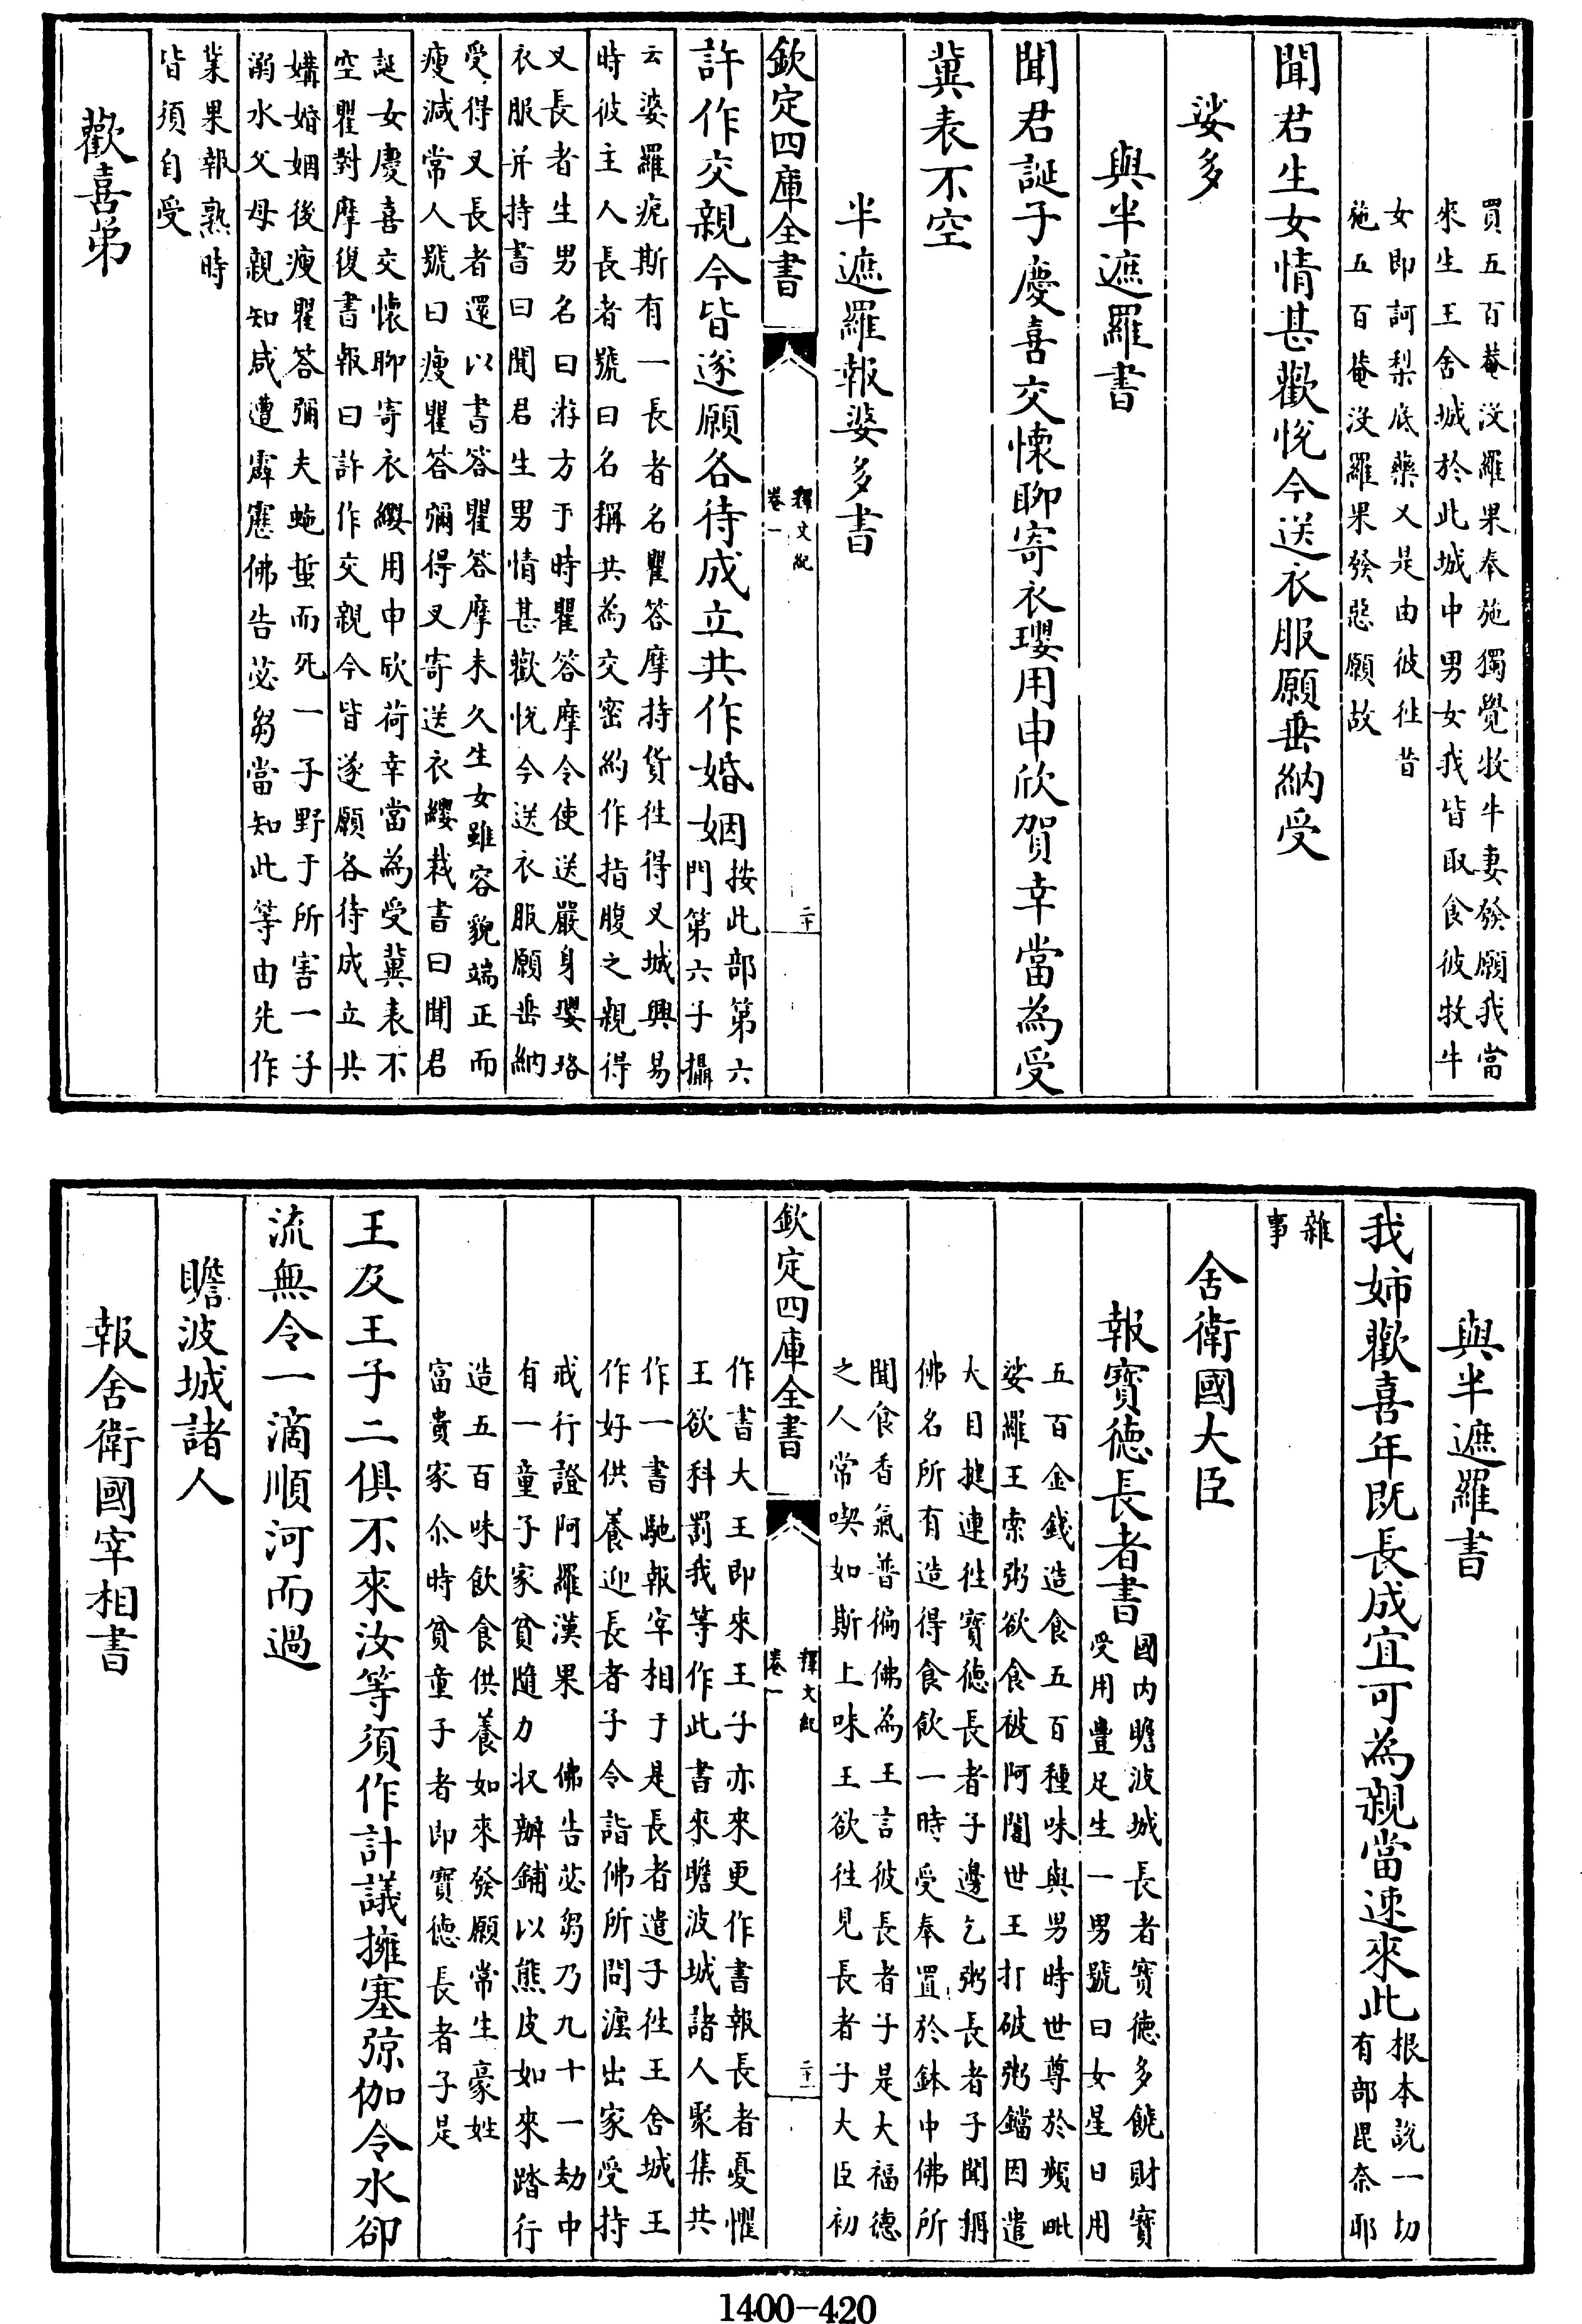 買五百菴没羅果奉施獨覺牧牛妻發願我當
來生王舍城於此城中男女我皆取食彼牧牛
女即訶梨底藥义是由彼往昔
施五百菴没羅果發惡願故
聞君生女情甚歡悅今送衣服願垂納受
娑多
與半遮羅書
聞君誕子慶喜交懷聊寄衣瓔用申欣賀幸當為受
冀表不空
半遮羅報娑多書
欽定四庫全書
釋文紀
卷一
二十
許作交親今皆遂願各待成立共作婚姻
按此部第六
門第六子攝
云婆羅疪斯有一長者名瞿答摩持貨往得叉城興易
時彼主人長者號曰名稱共為交密約作指腹之親得
叉長者生男名曰游方于時瞿答摩令使送嚴身瓔珞
衣服并持書曰聞君生男情甚歡悅今送衣服願垂納
受得叉長者還以書答瞿答摩未久生女雖容貌端正而
瘦減常人號曰瘦瞿答彌得叉寄送衣纓裁書曰聞君
誕女慶喜交懷聊寄衣纓用申欣荷幸當為受冀表不
空瞿對摩復書報曰許作交親今皆遂願各待成立共
媾婚姻後瘦瞿答彌夫虵蜇而死一子野于所害一子
溺水父母親知咸遭霹靂佛告苾芻當知此等由先作
業果報熟時
皆須自受
歡喜弟
與半遮羅書
我姉歡喜年既長成宜可為親當速來此
根本說一切
有部毘奈耶
雜
事
舍衛國大臣
報寶德長者書
國內瞻波城長者寶德多饒財寶
受用豐足生一男號曰女星日用
五百金錢造食五百種味與男時世尊於頻毗
娑羅王索粥欲食被阿闍世王打破粥鐺因遣
大目揵連往寶德長者子邊乞粥長者子聞稱
佛名所有造得食飲一時受奉置於鉢中佛所
聞食香氣普徧佛為王言彼長者子是大福德
之人常喫如斯上味王欲往見長者子大臣初
欽定四庫全書
釋文紀
卷一
二十一
作書大王即來王子亦來更作書報長者憂懼
王欲科罰我等作此書來瞻波城諸人聚集共
作一書馳報宰相于是長者遣子往王舍城王
作好供養迎長者子令詣佛所問湹出家受持
戒行證阿羅漢果 佛告苾芻乃九十一劫中
有一童子家貧隨力収辦鋪以熊皮如來踏行
造五百味飲食供養如來發願常生豪姓
富貴家尒時貧童子者即寶德長者子是
王及王子二俱不來汝等須作計議擁塞弶伽令水卻
流無令一滴順河而過
瞻波城諸人
報舍衛國宰相書
1400-420